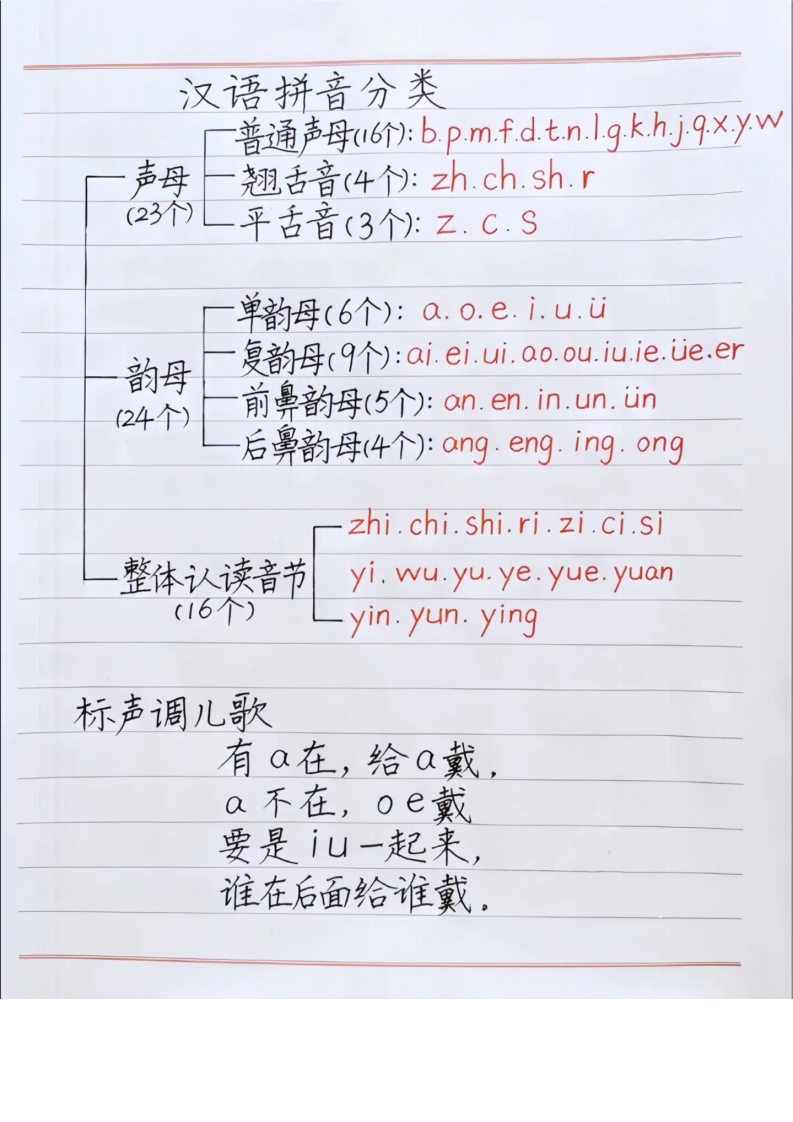 汉语拼音分类
声母
(23个)
普通声母(16个): b.p.m.f.d.t.n.l.g.k.h.j.q.x.y.w
翘舌音(4个): zh.ch.sh.r
平舌音(3个): z.c.s
韵母
(24个)
单韵母(6个): a.o.e.i.u.ü
复韵母(9个): ai.ei.ui.ao.ou.iu.ie.üe.er
前鼻韵母(5个): an.en.in.un.ün
后鼻韵母(4个): ang.eng.ing.ong
整体认读音节
(16个)
zhi.chi.shi.ri.zi.ci.si
yi.wu.yu.ye.yue.yuan
yin.yun.ying
标声调儿歌
有a在,给a戴,
a不在,oe戴
要是iu一起来,
谁在后面给谁戴。